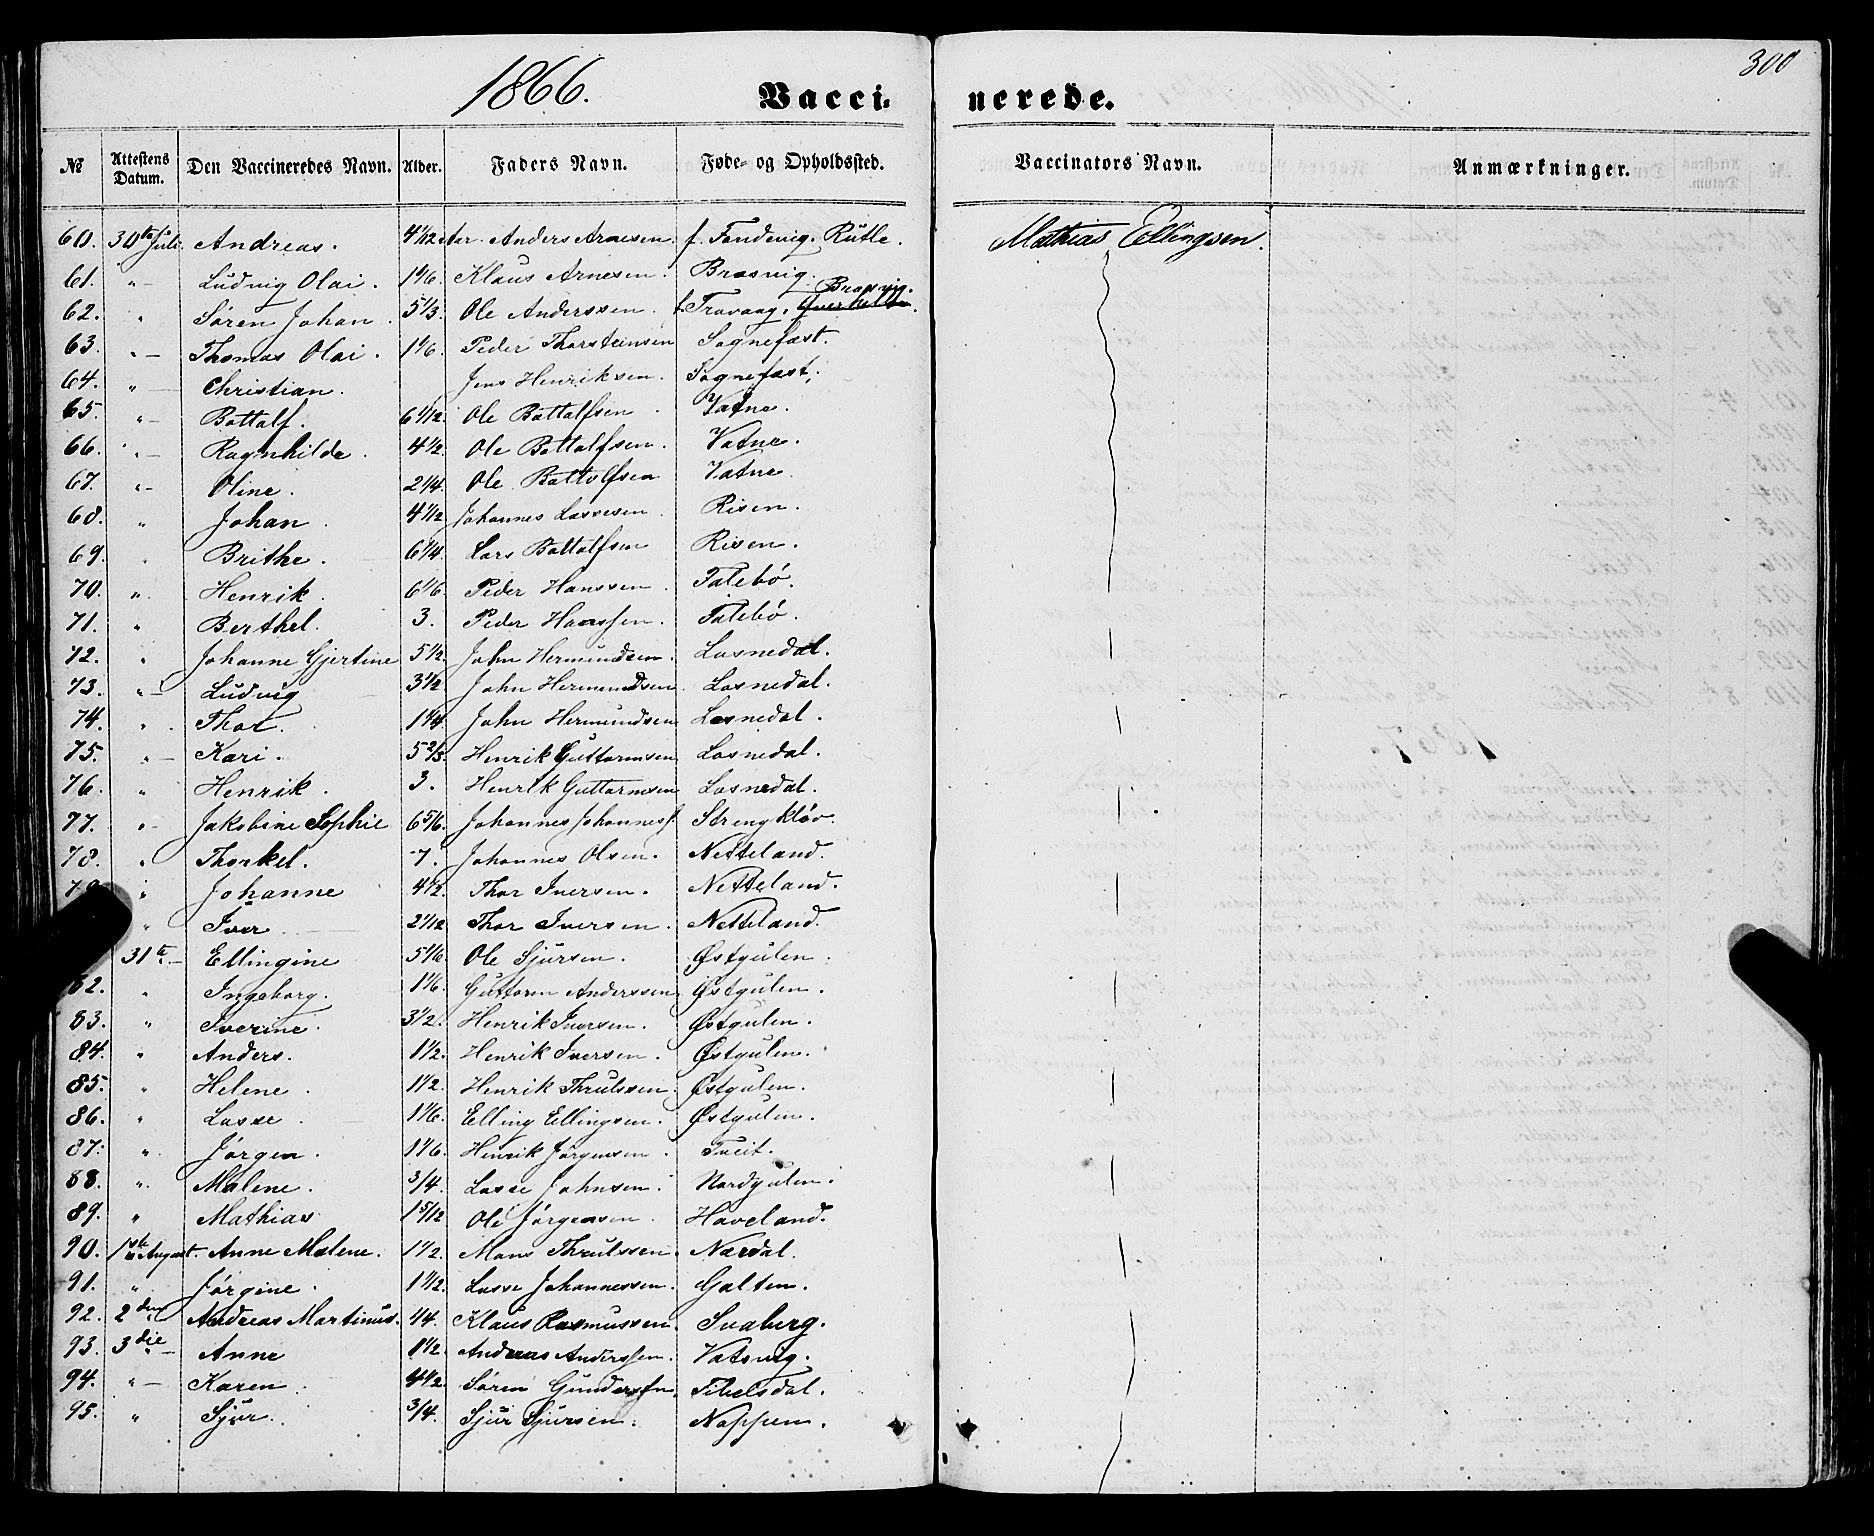 1866.
300
Vacci-
nerede.
№ Attestens Datum. Den Vaccineredes Navn. Alder. Faders Navn. Føde- og Opholdssted. Vaccinators Navn. Anmærkninger.
60. 30te Juli. Andreas. 4 1/12 Aar. Anders Arnesen. f. Tandevig. Rutle. Mathias Ellingsen.
61. " Ludvig Olai. 1 1/6. Klaus Arnesen. Brosvig.
Brosvig.
62. " Søren Johan. 5 1/3. Ole Anderssen. f. Travaag.
63. " Thomas Olai. 1 1/6. Peder Thorsteinsen Sognefæst.
64. " Christian. Jens Henriksen. Sognefæst.
65. " Battalf. 6 1/12 Ole Battalfsen Vatne.
66. " Ragnhilde. 4 1/2. Ole Battalfsen. Vatne.
67. " Oline. 2 1/4. Ole Battolfsen Vatne.
68. " Johan. 4 1/12 Johannes Lassesen. Risen.
69. " Brithe. 6 1/4. Lars Battalfsen Risen.
70. " Henrik. 6 1/6. Peder Hanssen. Talebø.
71. " Berthel. 3. Peder Hanssen. Talebø.
72. " Johanne Gjertine 5 1/2. John Hermundsen. Losnedal.
73. " Ludvig 3 1/2. John Hermundsen. Losnedal.
74. " Thor. 1 1/4 John Hermundsen Losnedal.
75. " Kari. 5 2/3. Henrik Guttormsen Losnedal.
76. " Henrik. 3. Henrik Guttormsen Losnedal.
77. " Jakobine Sophie 6 5/6. Johannes Johannesf. Strengkløv.
78. " Thorkel. 7. Johannes Olsen. Netteland.
" Johanne 4 1/2. Thor Iversen. Netteland.
" Iver 2 1/12 Thor Iversen. Netteland.
31te Ellingine 5 1/6 Ole Sjursen. Østgulen.
82. " Ingeborg. 1 1/6. Guttorm Anderssen Østgulen.
83. " Iverine. 3 1/2. Henrik Iversen. Østgulen.
84. " Anders. 1 1/2. Henrik Iversen. Østgulen.
85. " Helene. 1 1/2. Henrik Thrulssen. Østgulen.
86. " Lasse. 1 1/6. Elling Ellingsen. Østgulen.
87. " Jørgen. 1 1/6. Henrik Jørgensen. Tveit.
88. " Malene. 3/4. Lasse Johnsen. Nordgulen.
89. " Mathias 1 5/12 Ole Jørgensen. Haveland.
90. 1ste August. Anne Malene. 1 1/2. Mons Thrulssen. Nærdal.
91. " Jørgine. 1 1/2. Lasse Johannessen. Galten.
92. 2den Andreas Martinus. 1/4. Klaus Rasmussen. Svaberg.
93. 3die Anne 1 1/2. Andreas Anderssen. Vatsvig.
94. " Karen. 4 1/2. Søren Gunderssen. Tibelsdal.
95. " Sjur. 3/4. Sjur Sjursen. Nappen.